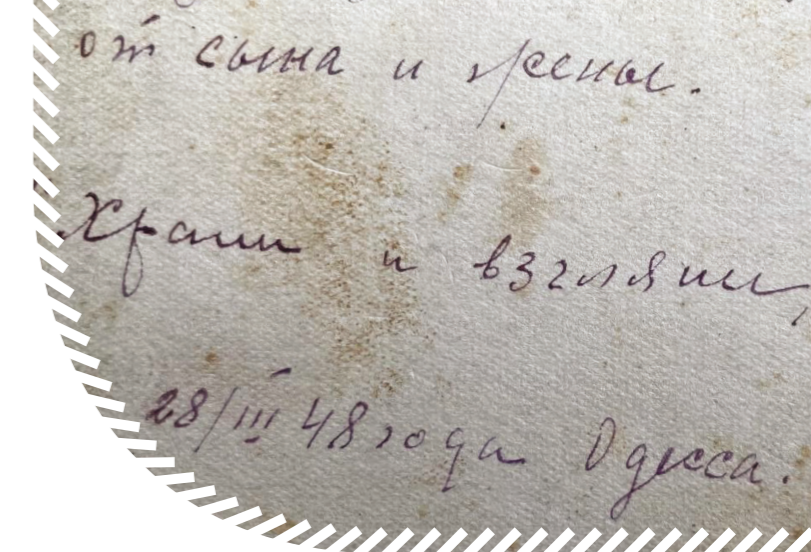 от сына и жены.
Храни и взгляни,
28/III 48 года Одесса.